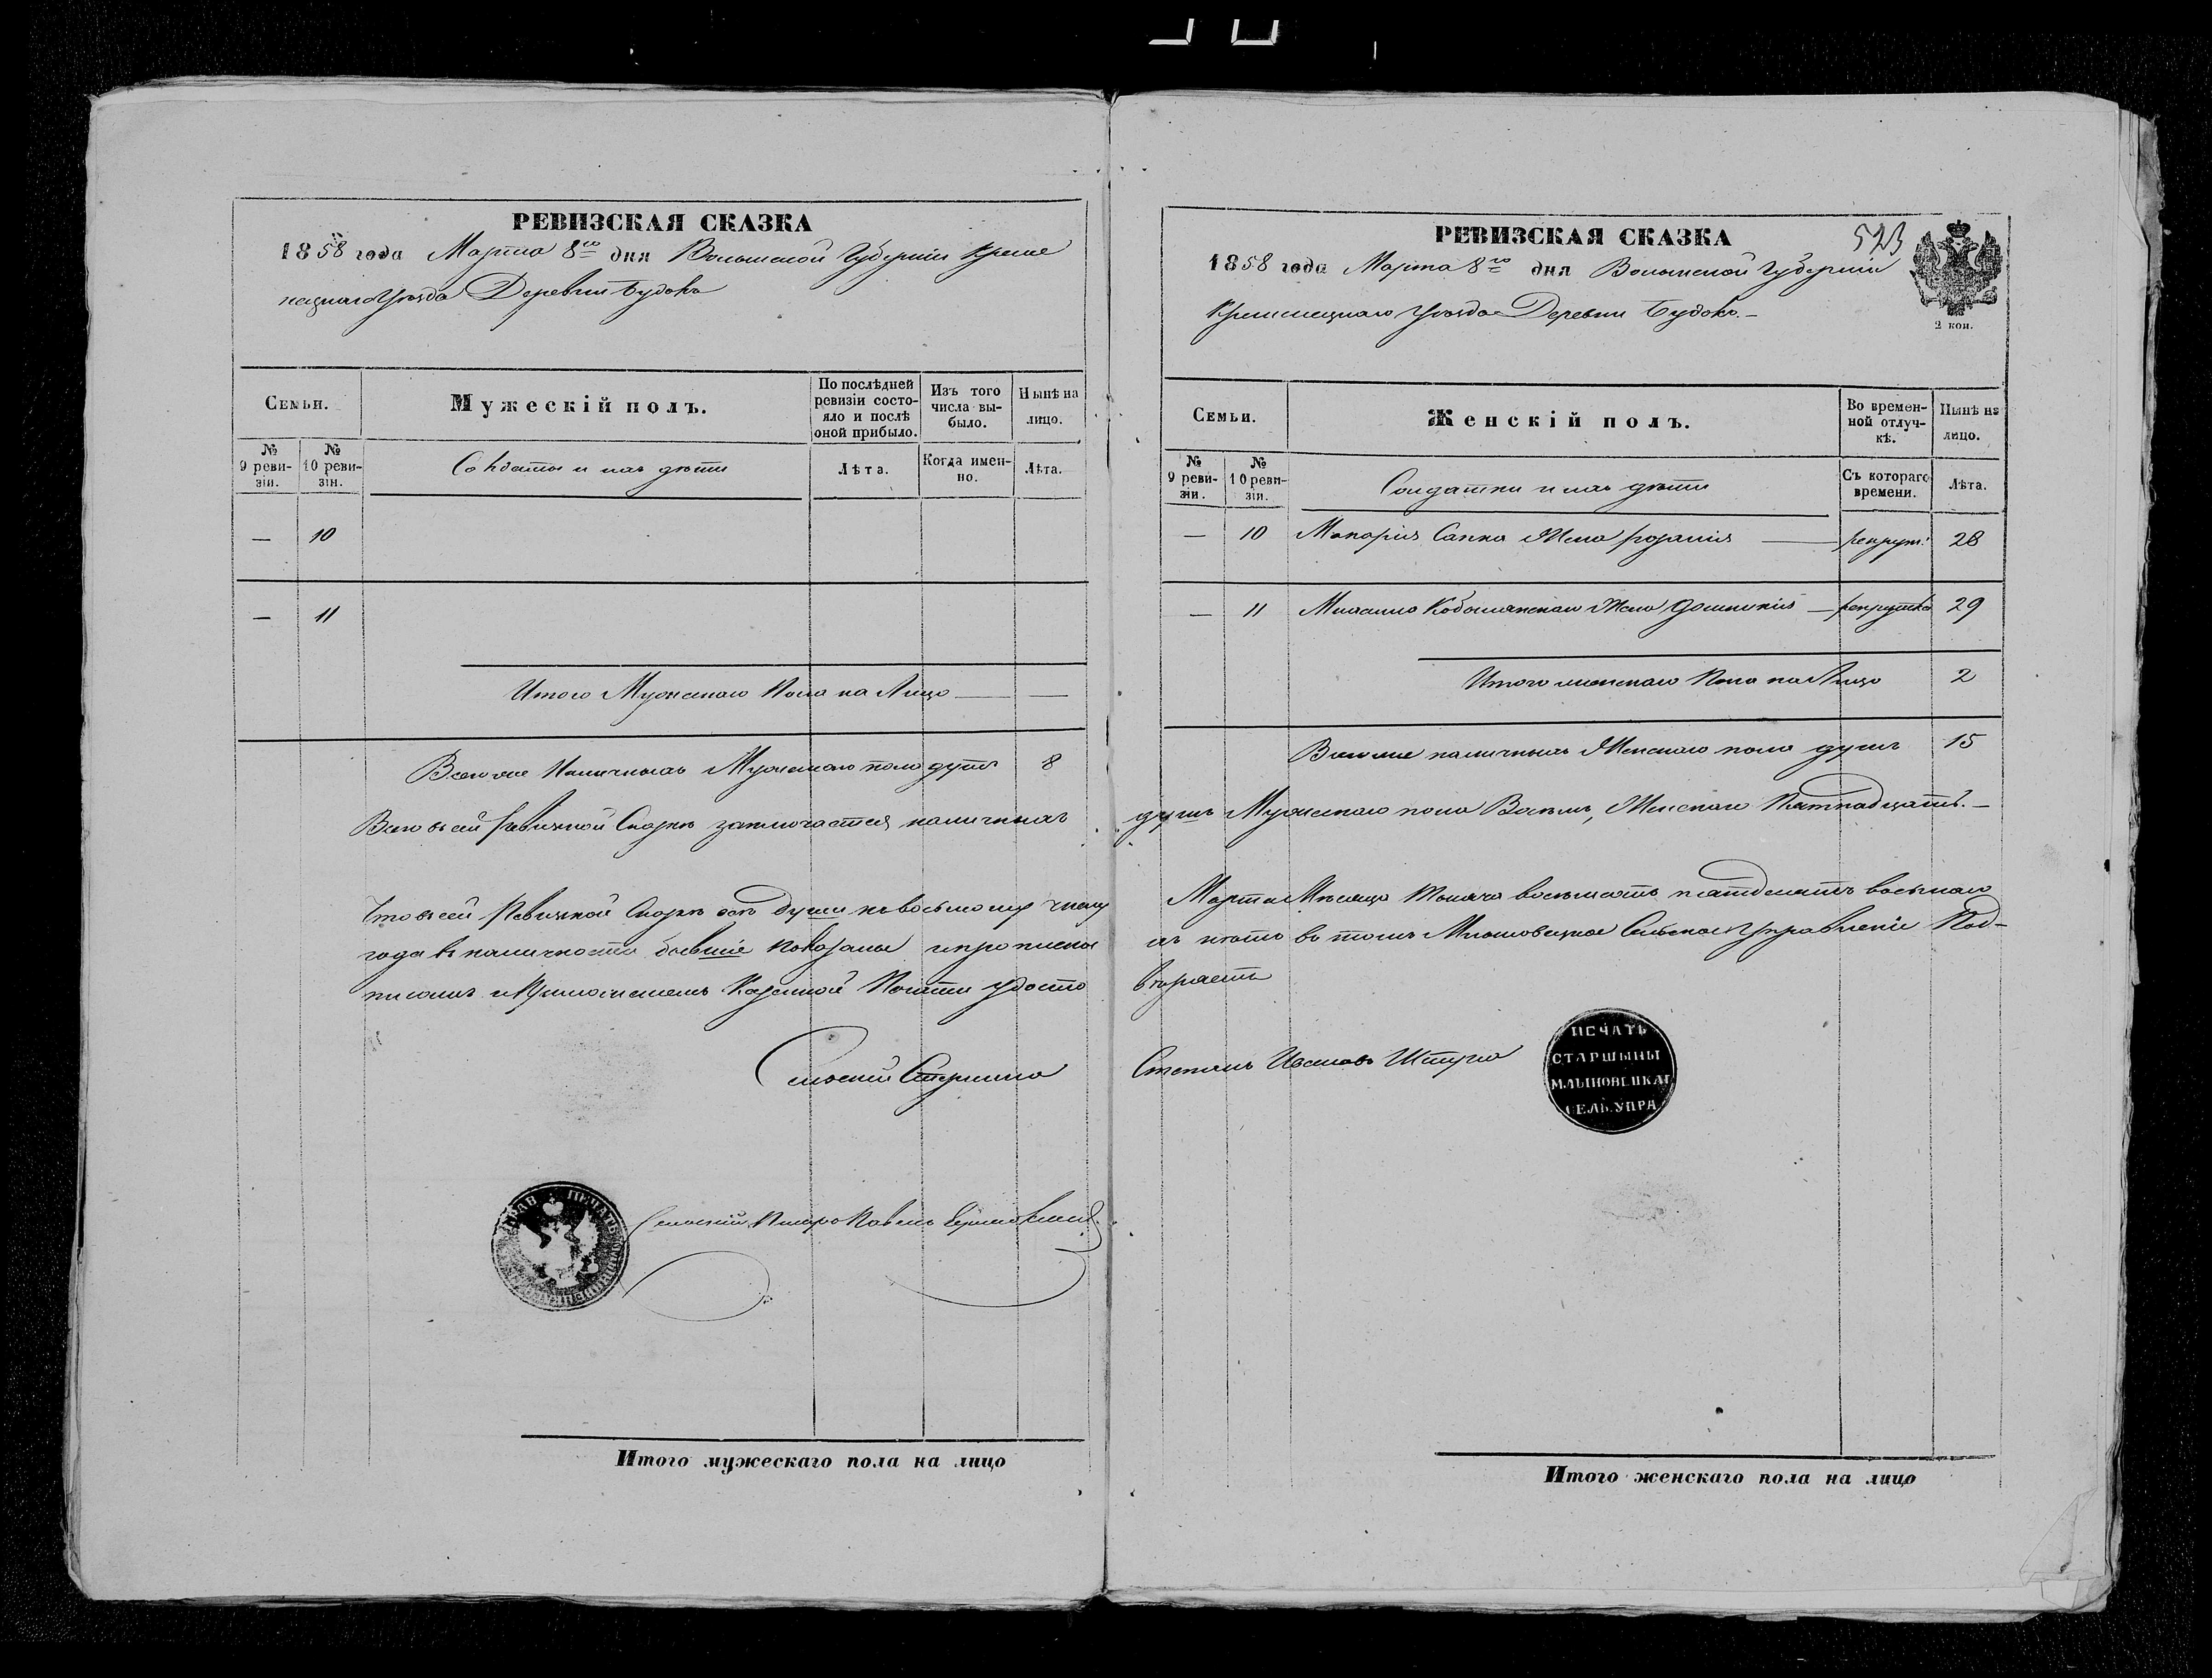 РЕВИЗСКАЯ СКАЗКА
1858 года Марта 8го дня Волынской Губерніи Креме
нецкаго Уѣзда Деревни Будокъ
Семьи.
Мужескій полъ.
По послѣдней ревизіи состояло и послѣ оной прибыло.
Изъ того числа выбыло.
Нынѣ на лицо.
№ 9 ревизіи.
№ 10 ревизін.
Солдаты и ихъ дѣти
Лѣта.
Когда именно.
Лѣта.
— 10
— 11
Итого Мужескаго Пола на Лицо — —
Всего же Наличныхъ Мужескаго пола душъ 8
Всего въ сей Ревизкой Сказкѣ заключается наличныхъ
Что въ сей Ревизкой Сказкѣ всѣ души къ восьмому числу
года въ наличности бывшіе показаны и прописных
писомъ и Приложеніемъ Казенной Печати удосто
Сельскій Старшина
Сельскій Писарь Павелъ
Итого мужескаго пола на лицо
РЕВИЗСКАЯ СКАЗКА
523
1858 года Марта 8го дня Волынской Губерніи
Кременецкаго Уѣзда Деревни Будокъ.—
2 коп.
Семьи.
Женскій полъ.
Во временной отлучкѣ.
Нынѣ на лицо.
№ 9 ревизіи.
№ 10 ревизіи.
Солдатки и ихъ дѣти
Съ котораго времени.
Лѣта.
— 10 Макарія Сапка Жена Розалія — рекрут: 28
— 11 Михаила Кобылянскаго Жена Домникія — рекрутка 29
Итого женскаго Пола на Лицо 2
Всего же наличныхъ Женскаго пола душъ 15
душъ Мужескаго пола Восемь, Женскаго Пятнадцать.—
Марта Мѣсяца Тысяча восемьсотъ пятдесятъ восьмаго
нѣтъ въ томъ Млыновецкое Сельское Управленіе Под-
вѣряетъ
Степанъ Ивановъ Штуна
ПЕЧАТЬ
СТАРШЫНЫ
МЛЫНОВЕЦКАГ
СЕЛЬ.УПРА
Итого женскаго пола на лицо